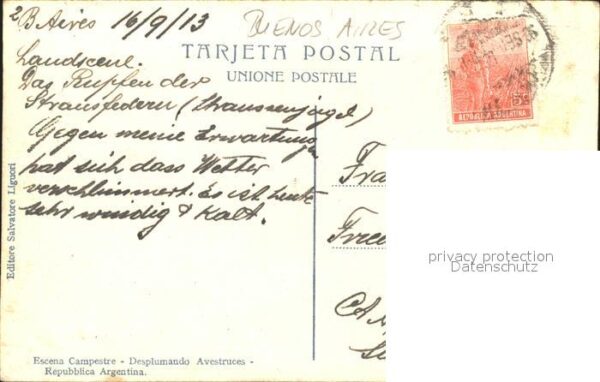 2 B Aires 16/9/13 BUENOS AIRES
TARJETA POSTAL
UNIONE POSTALE
Landscene.
Das Rupfen der
Straussfedern
Gegen meine Erwartungen
hat sich dass Wetter
verschlimmert. Es ist heute
sehr windig & Kalt.
REPUBLICA ARGENTINA
5c
Fra
Free
privacy protection
Datenschutz
Editore Salvatore Liguori
Escena Campestre - Desplumando Avestruces -
Repubblica Argentina.